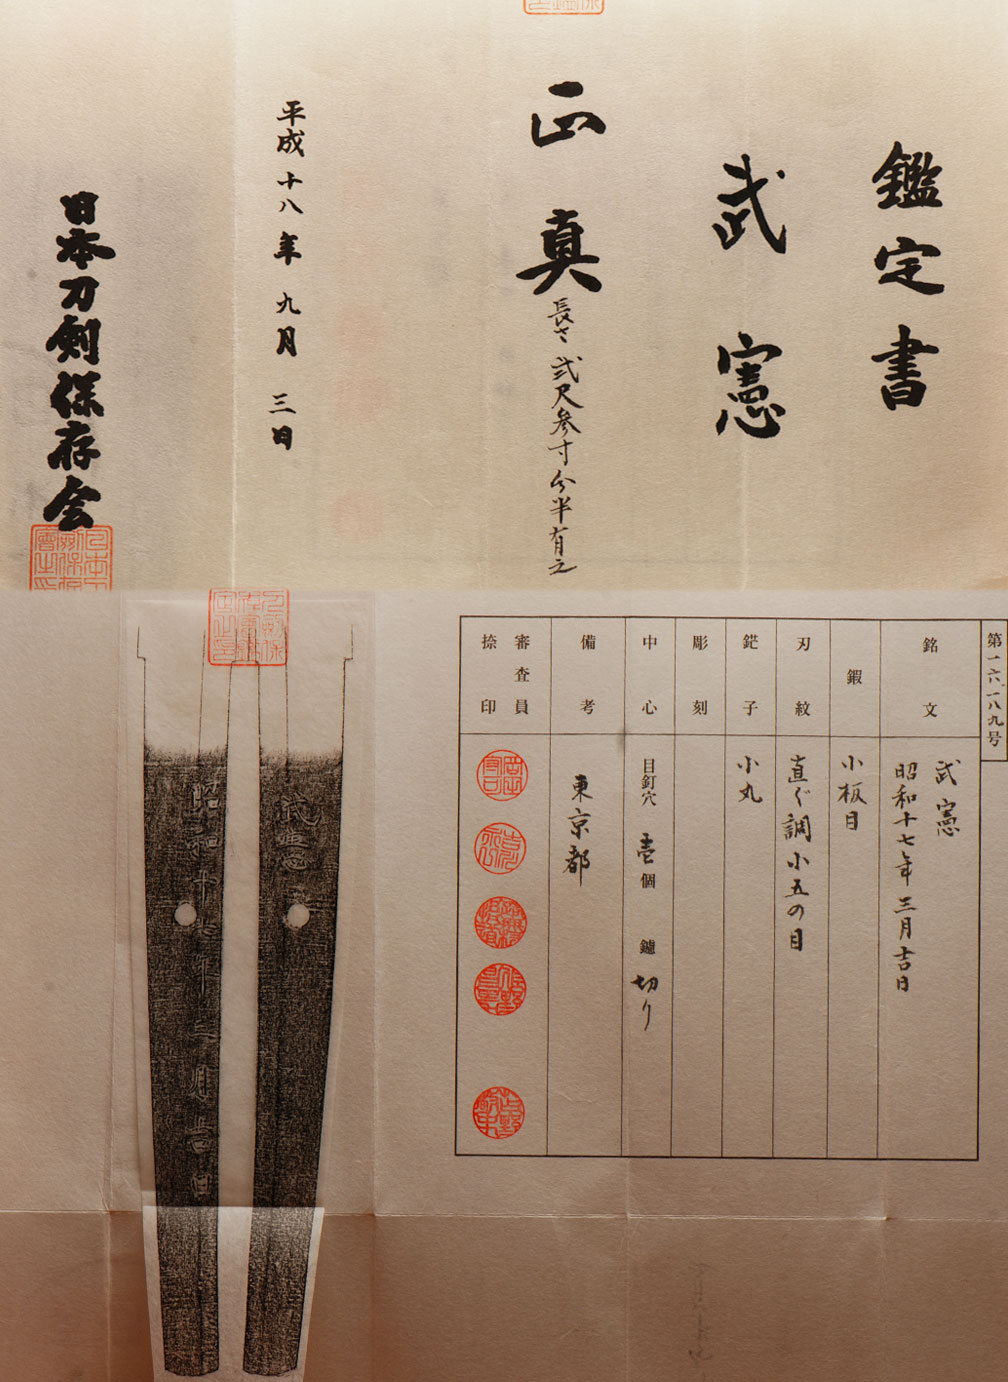 鑑定書
武憲
正真
長さ弐尺参寸分半有之
平成十八年九月三日
日本刀剣保存会
第一六、一八九号
銘文
武憲
昭和十七年三月吉日
鍜
小板目
刃紋
直ぐ調小五の目
鋩子
小丸
彫刻
中心
目釘穴 壱個 鑢 切り
備考
東京都
審査員
捺印
武憲
昭和十七年三月吉日